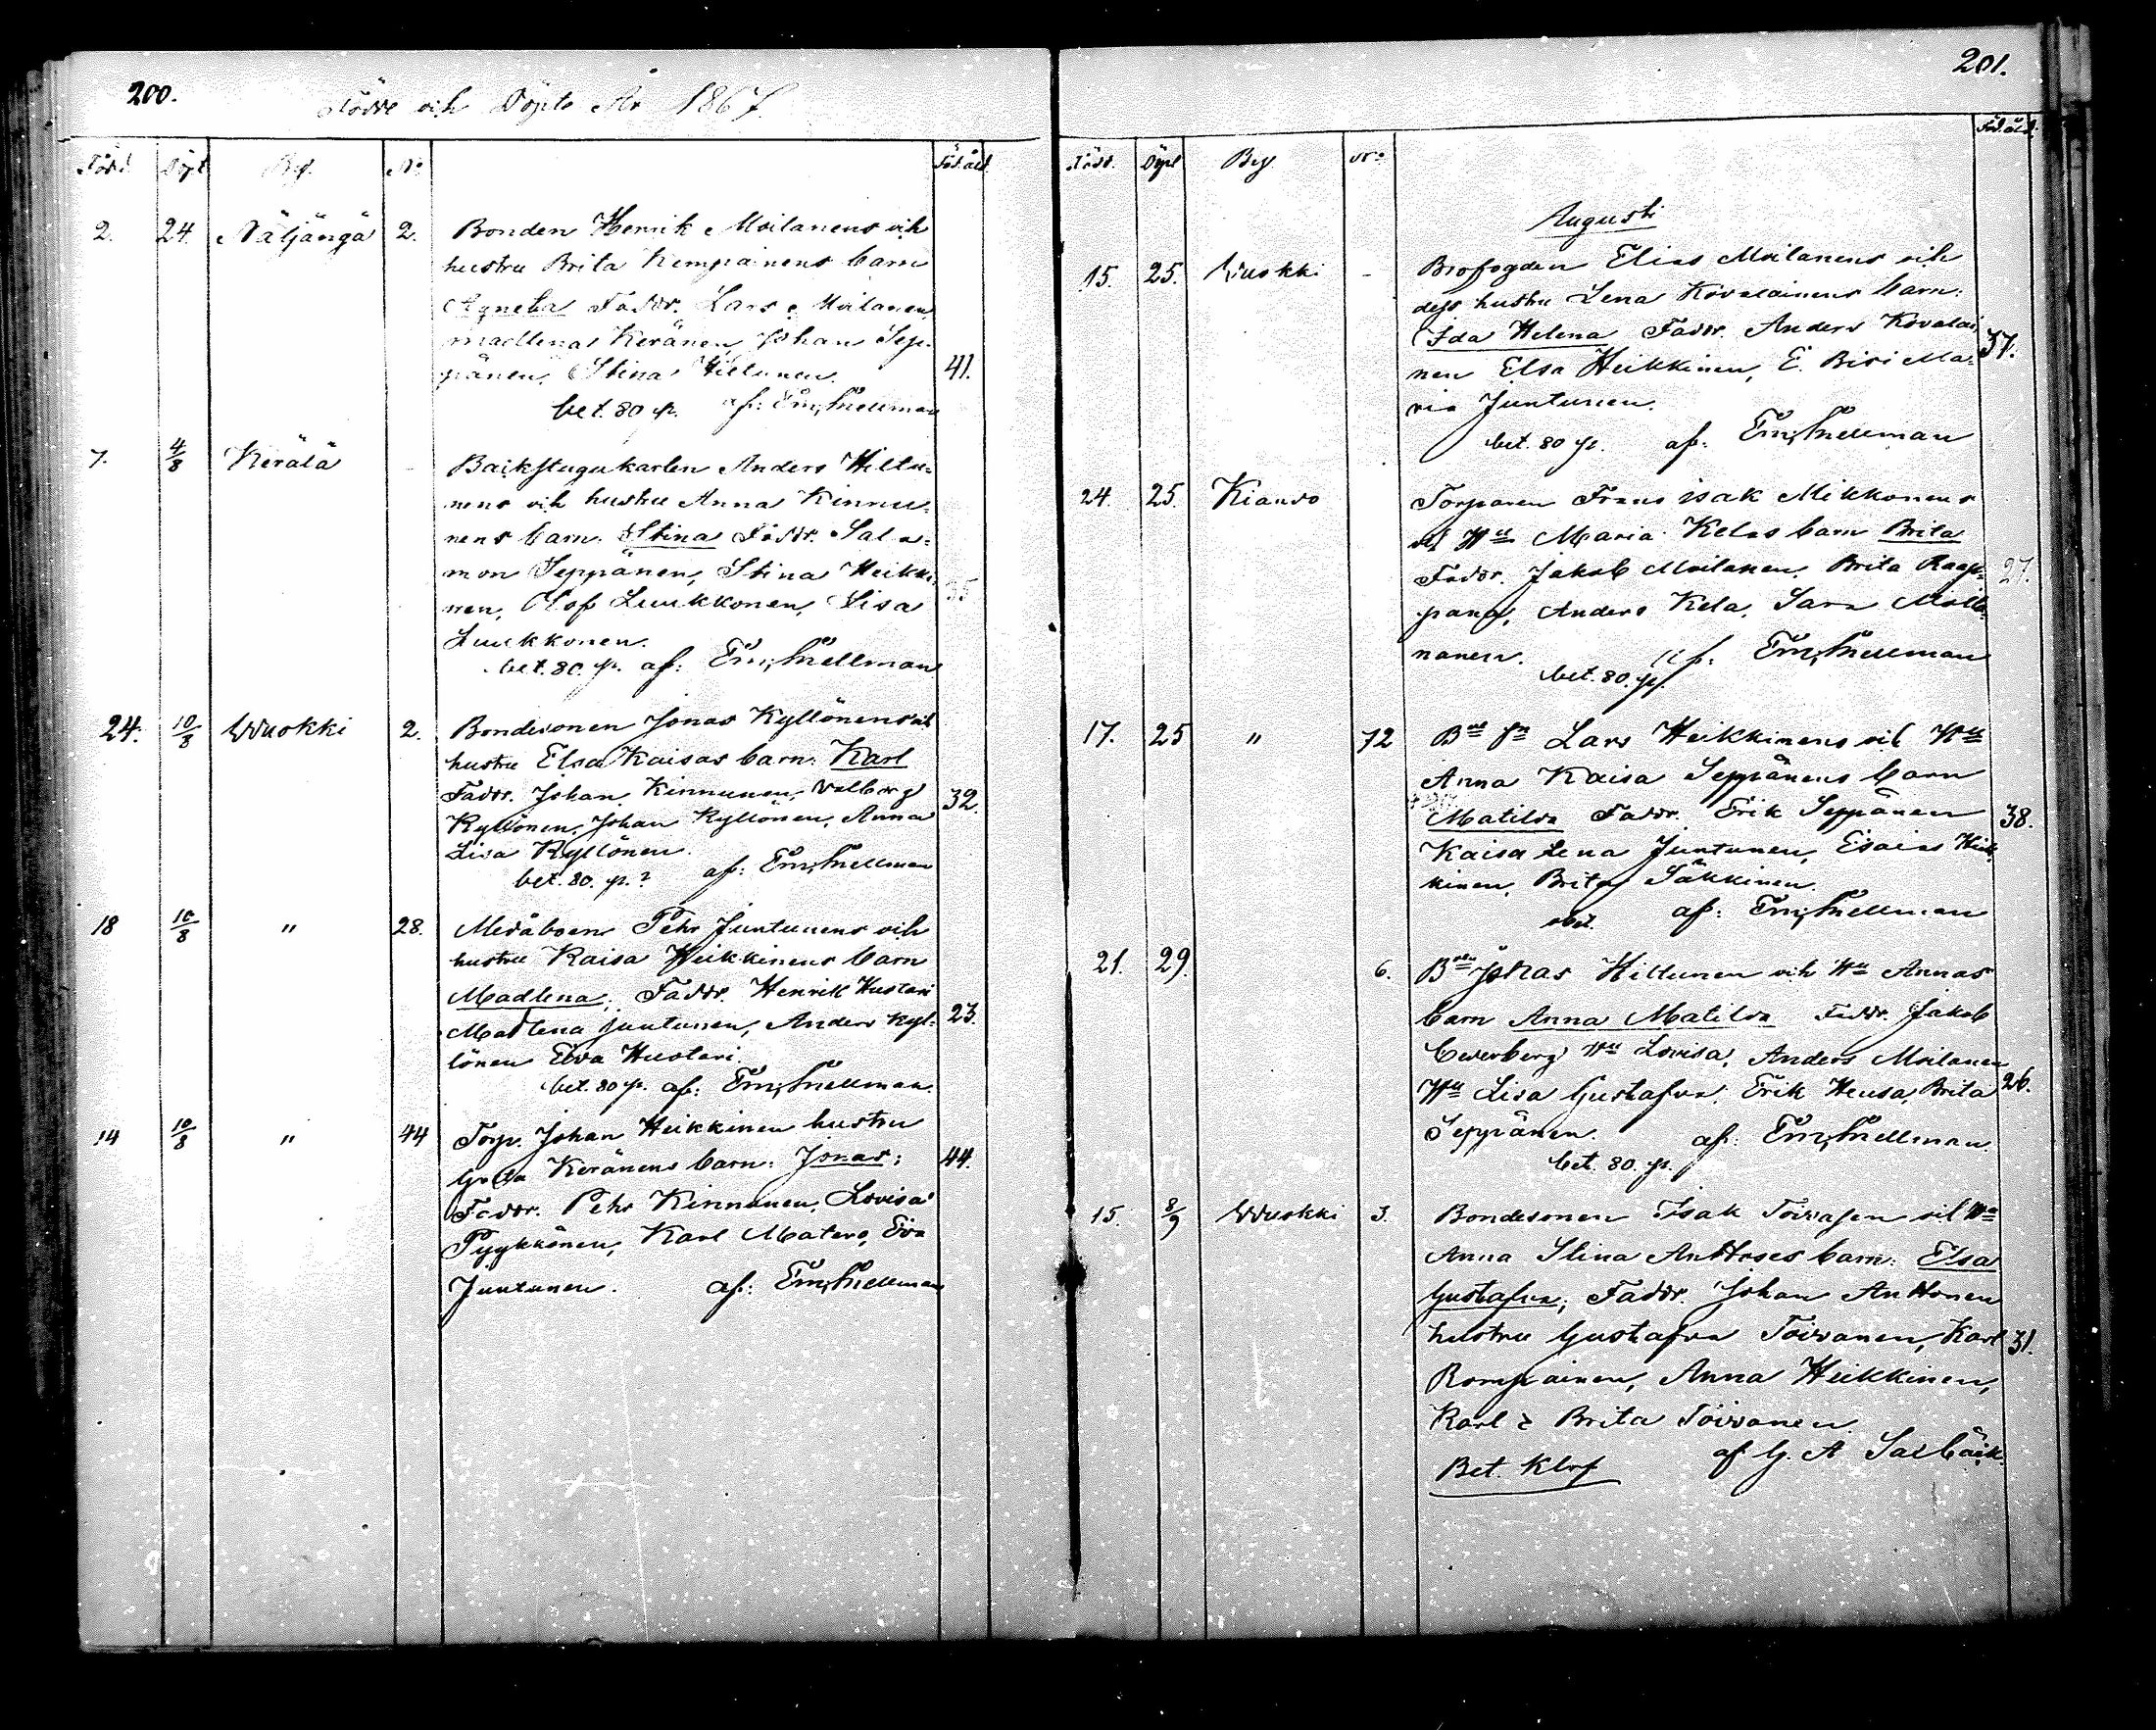 200.
Födde och Döpte År 1867.
Född Döpt By. No Föd. åld.
2. 24. Näljängä 2. Bonden Henrik Moilanens och
hustru Brita Kempainens barn
Agneta Faddr. Lars Moilanen
Madlena Keränen, Johan Sep-
pänen, Stina Hiltunen. 41.
bet. 80 p. af: Em. Snellman
7. 4/8 Kerälä - Backstugukarlen Anders Hiltu-
nens och hustru Anna Kinnu-
nens barn. Stina Faddr. Salo-
mon Seppänen, Stina Heikki-
nen, Olof Luukkonen, Lisa 35
Luukkonen.
bet. 80. p. af: Em. Snellman
24. 10/8 Wuokki 2. Bondesonen Jonas Kyllönens och
hustru Elsa Kaisas barn: Karl
Faddr. Johan Kinnunen, Walborg 32.
Kyllönen, Johan Kyllönen, Anna
Lisa Kyllönen.
bet. 80. p.? af: Em. Snellman
18 10/8 " 28. Medåboen Pehr Juntunens och
hustru Kaisa Heikkinens barn
Madlena; Faddr. Henrik Hustari
Madlena Juntunen, Anders Kyl- 23.
lönen Eva Huotari.
bet. 80 p. af: Em. Snellman.
14 10/8 " 44 Torp. Johan Heikkinen hustru
Greta Keränens barn: Jonas; 44.
Faddr. Pehr Kinnunen, Lovisa
Pyykkönen, Karl Matero, Eva
Juntunen. af: Em. Snellman
201.
Född. Döpt By. No. Föd. åld.
Augusti
15. 25. Wuokki - Brofogden Elias Moilanens och
dess hustru Lena Kovalainens barn:
Ida Helena Faddr. Anders Kovalai- 37.
nen Elsa Heikkinen, E. Ma-
ria Juntunen.
bet. 80 p. af: Em. Snellman
24. 25. Kiando Torparen Frans isak Mikkonens
och Hu Maria Kelas barn Brita
Faddr. Jakob Moilanen, Brita Raap- 27.
pana, Anders Kela, Sara
nanen. af: Em. Snellman
bet. 80. p.
17. 25 " 72 Lars Heikkinens och Hu
Anna Kaisa Seppänens barn
Matilda Faddr. Erik Seppänen 38.
Kaisa Lena Juntunen, Esaias Heik-
kinen, Brita Säkkinen.
obet. af: Em. Snellman
21. 29. 6. Jonas Hiltunen och Hu Annas
barn Anna Matilda Faddr. Jakob
Cederberg Hu Lovisa, Anders Moilanen
Hu Lisa Gustafva, Erik Heusa, Brita 26.
Seppänen. af: Em. Snellman.
bet. 80. p.
15. 8/9 Wuokki 3. Bondesonen Isak Toivasen och Hu
Anna Stina Anttoses barn: Elsa
Gustafva; Faddr. Johan Anttonen
hustru Gustafva Toivanen, Karl 31.
Rompainen, Anna Heikkinen,
Karl & Brita Toivanen.
Bet. Klof af G. A